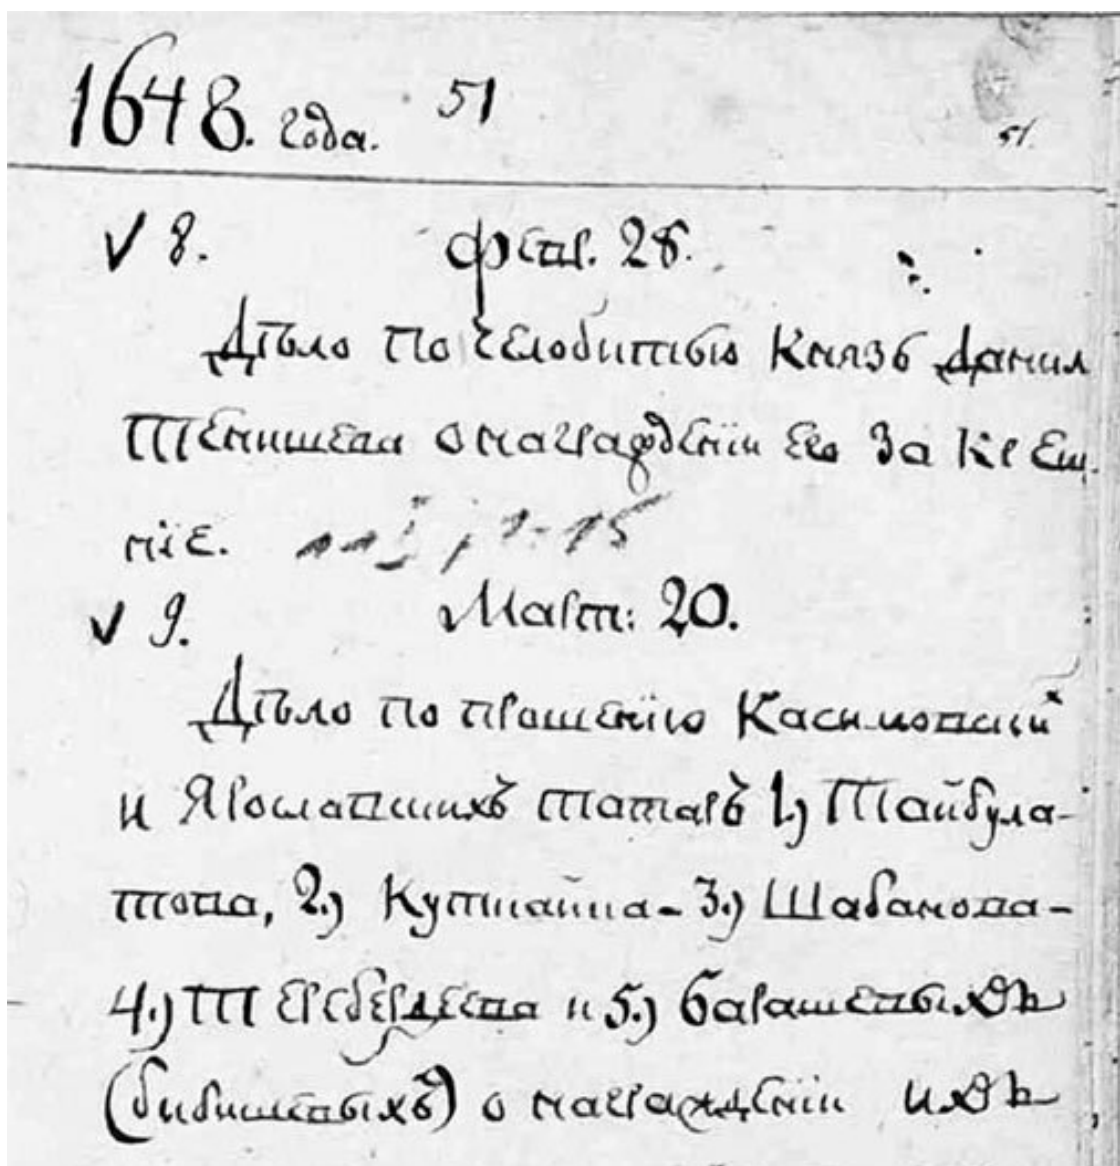 1648. года. 51 51.
√ 8. Февр. 28.
Дѣло по челобитью Князь Данил
Тенишева о награжденіи его за крещ.
ніе.
√ 9. Март: 20.
Дѣло по прошенїю Касимовский
и Ярославскихъ татаръ 1.) Тайбула-
това, 2.)
3.) Шабанова-
4.) Тербердеева и 5.) барашевыхъ
(бибишевыхъ) о награжденїи ихъ